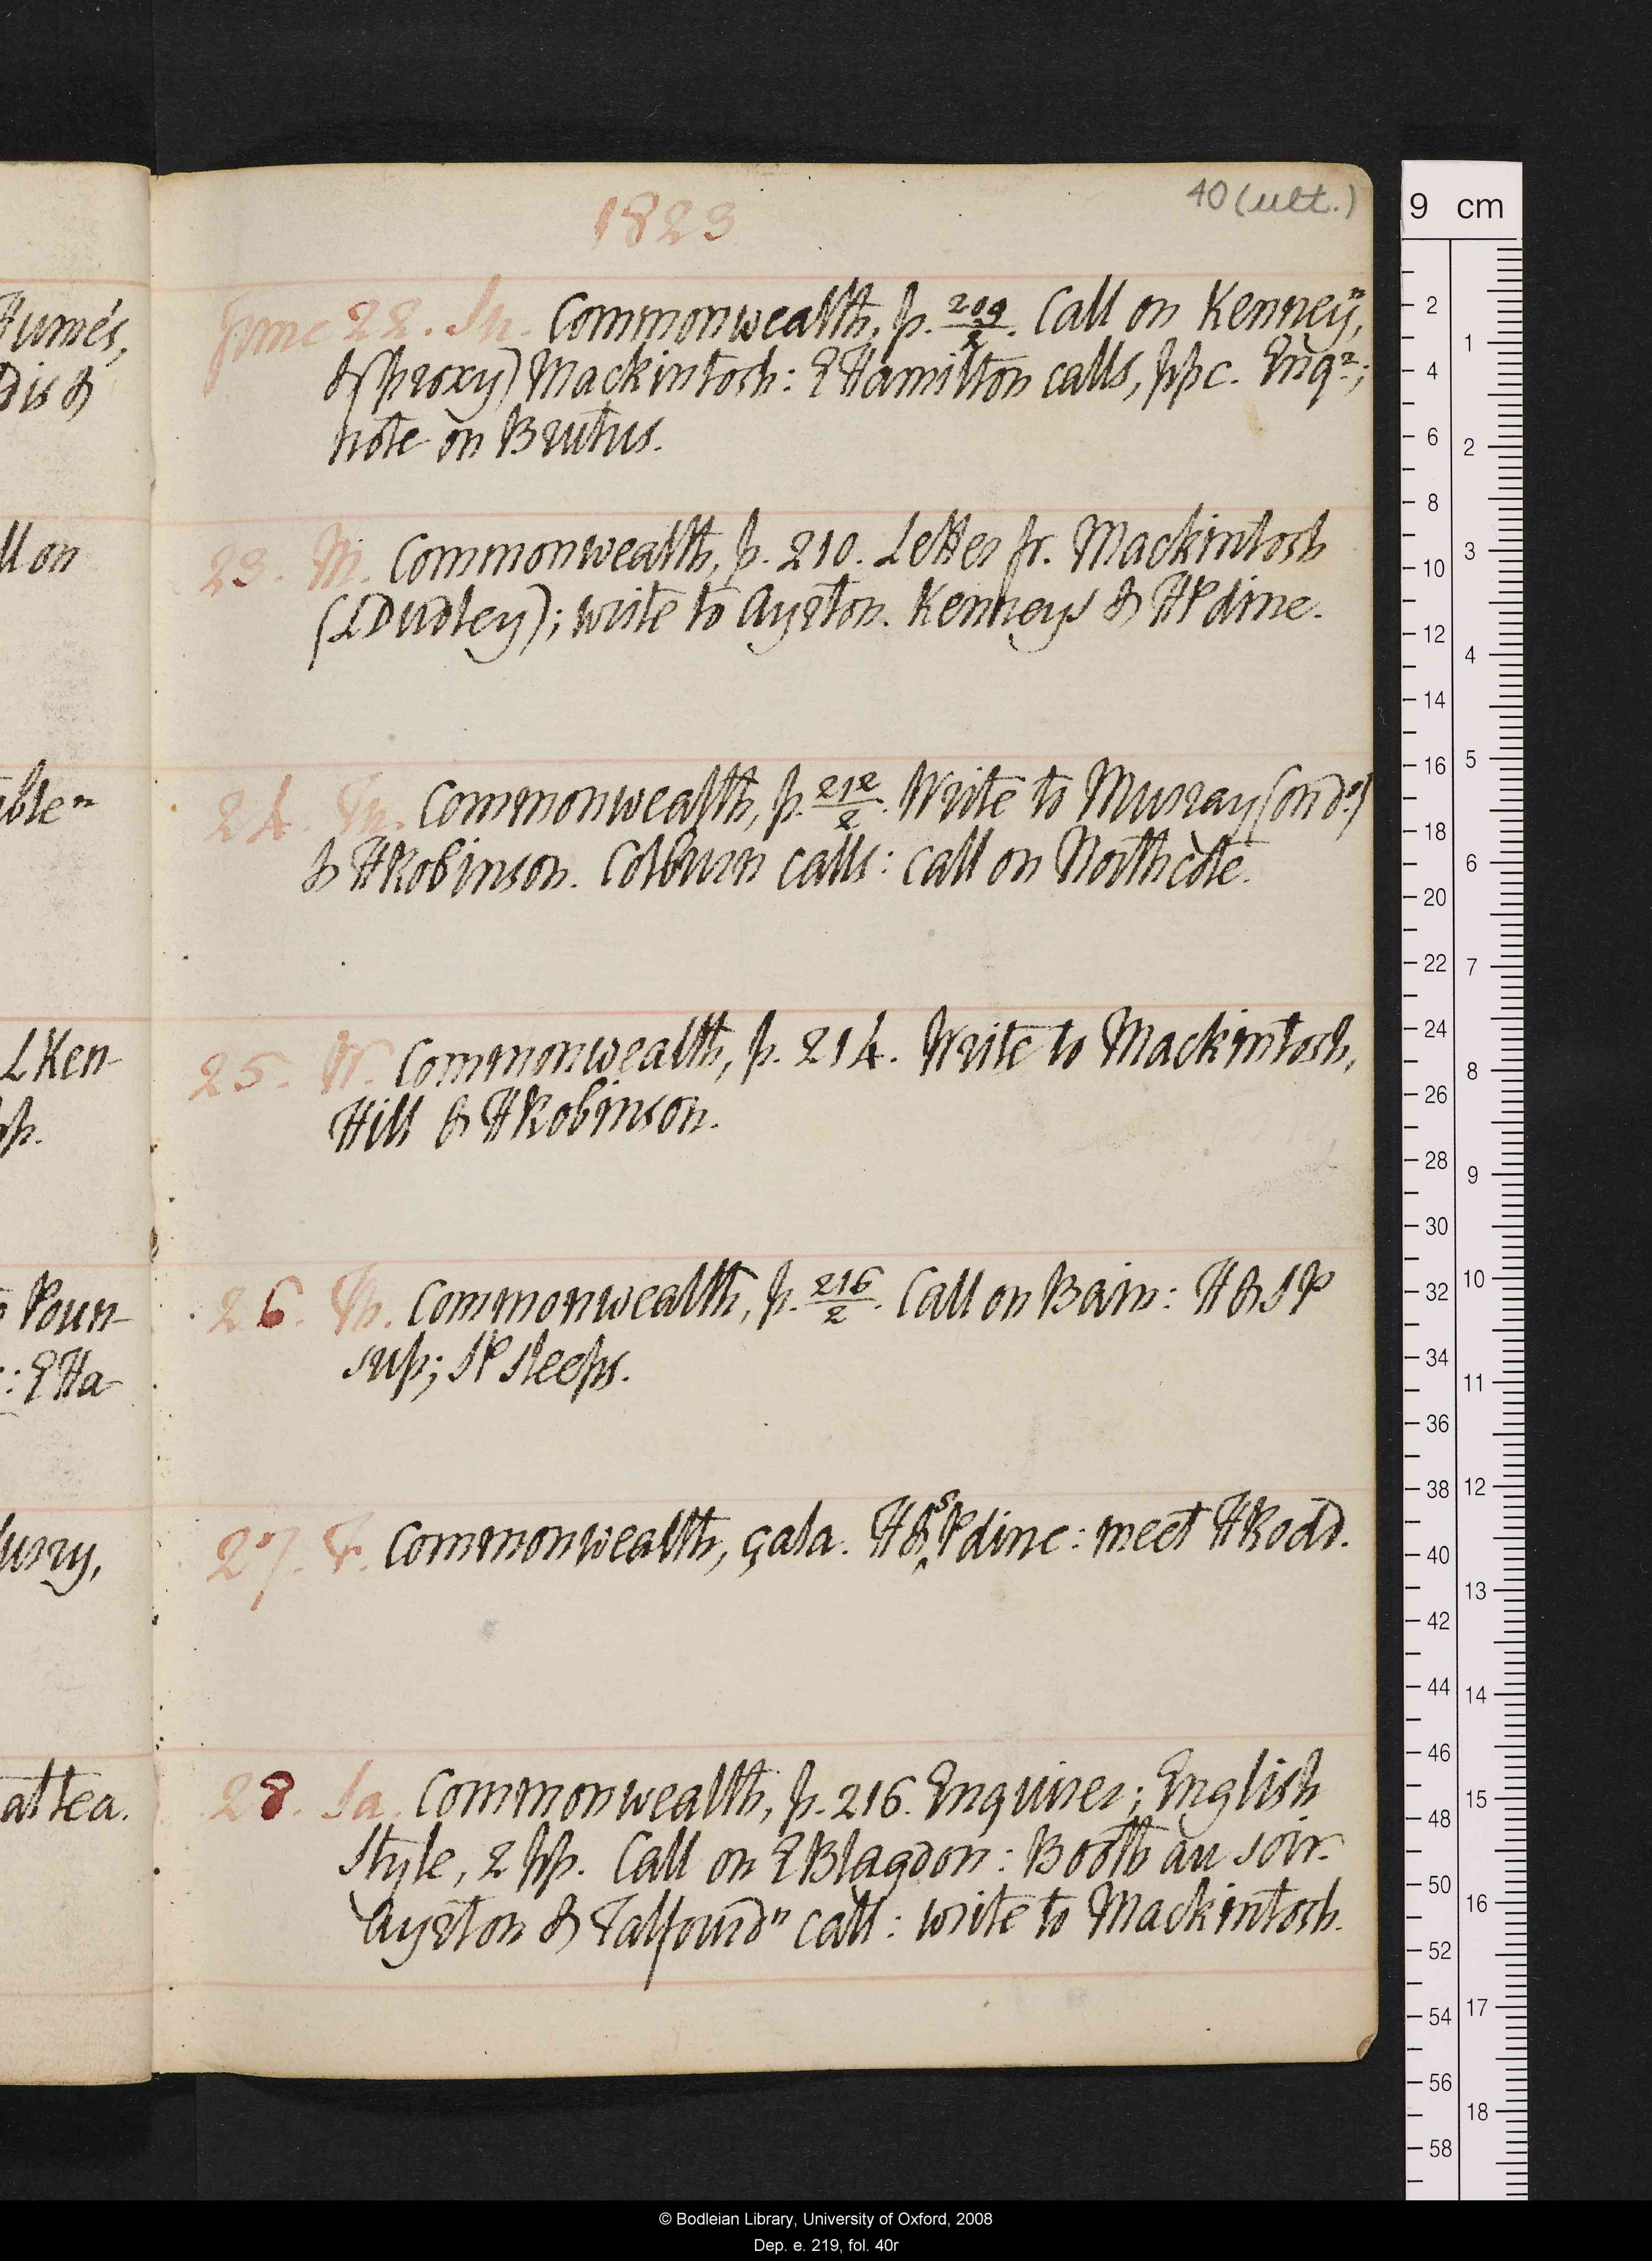 Humes,
dis &
ll on
ble n
L Ken-
pp.
Poun-
: E Ha-
usry,
at tea.
40 (ult.)
1823
June 22. Su. Commonwealth, p. 209/2. Call on Kenney n,
& (proxy) Mackintosh: E Hamilton calls, ppc. Enqr;
note on Brutus.
23. M. Commonwealth, p. 210. Letter fr. Mackintosh
(L Dudley); write to Ayrton. Kenneys & H P dine.
24. Tu. Commonwealth, p. 212/2. Write to Murray (on do)
& H Robinson. Colburn calls: call on Northcote.
25. W. Commonwealth, p. 214. Write to Mackintosh,
Hill & H Robinson.
26. Th. Commonwealth, p. 216/2. Call on Bain: H & S P
sup; S P sleeps.
27. F. Commonwealth, çala. H & S P dine: meet H Rodd.
28. Sa. Commonwealth, p. 216. Enquirer; English
Style, 2 pp. Call on E Blagdon: Booth au soir.
Ayrton & Talfourd n call: write to Mackintosh.
9 cm
2
4
6
8
10
12
14
16
18
20
22
24
26
28
30
32
34
36
38
40
42
44
46
48
50
52
54
56
58
1
2
3
4
5
6
7
8
9
10
11
12
13
14
15
16
17
18
© Bodleian Library, University of Oxford, 2008
Dep. e. 219, fol. 40r